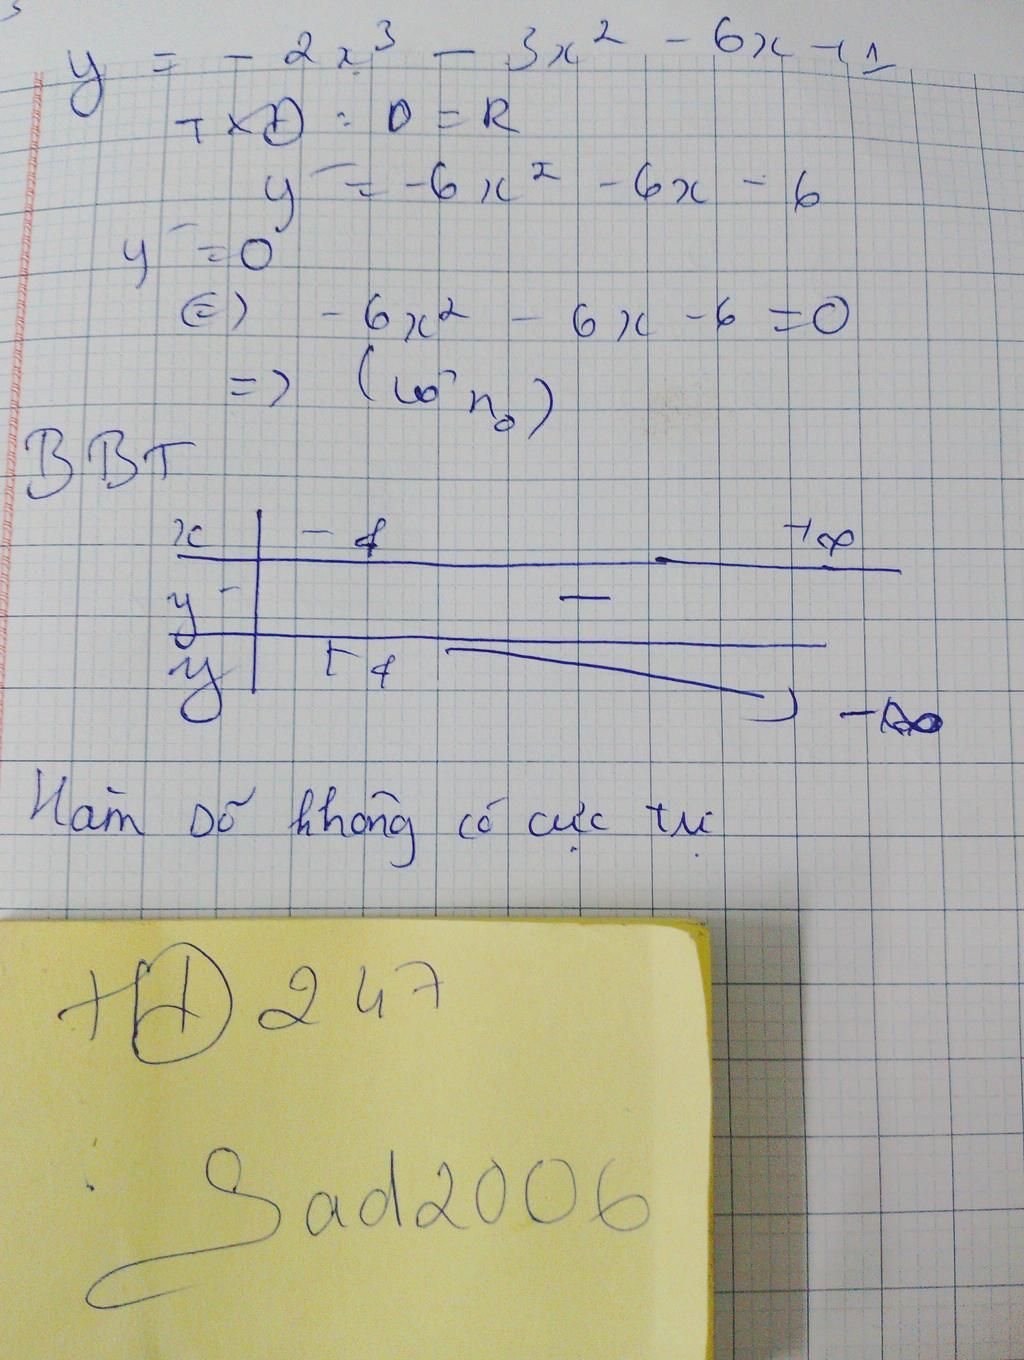 y = - 2x³ - 3x² - 6x + 1
TXĐ : D = R
y' = -6x² - 6x - 6
y' = 0
⇔ -6x² - 6x - 6 = 0
=> (vô n₀)
BBT
x -∞ +∞
y' -
y +∞ -∞
Hàm số không có cực trị
HĐ 247
Sad2006